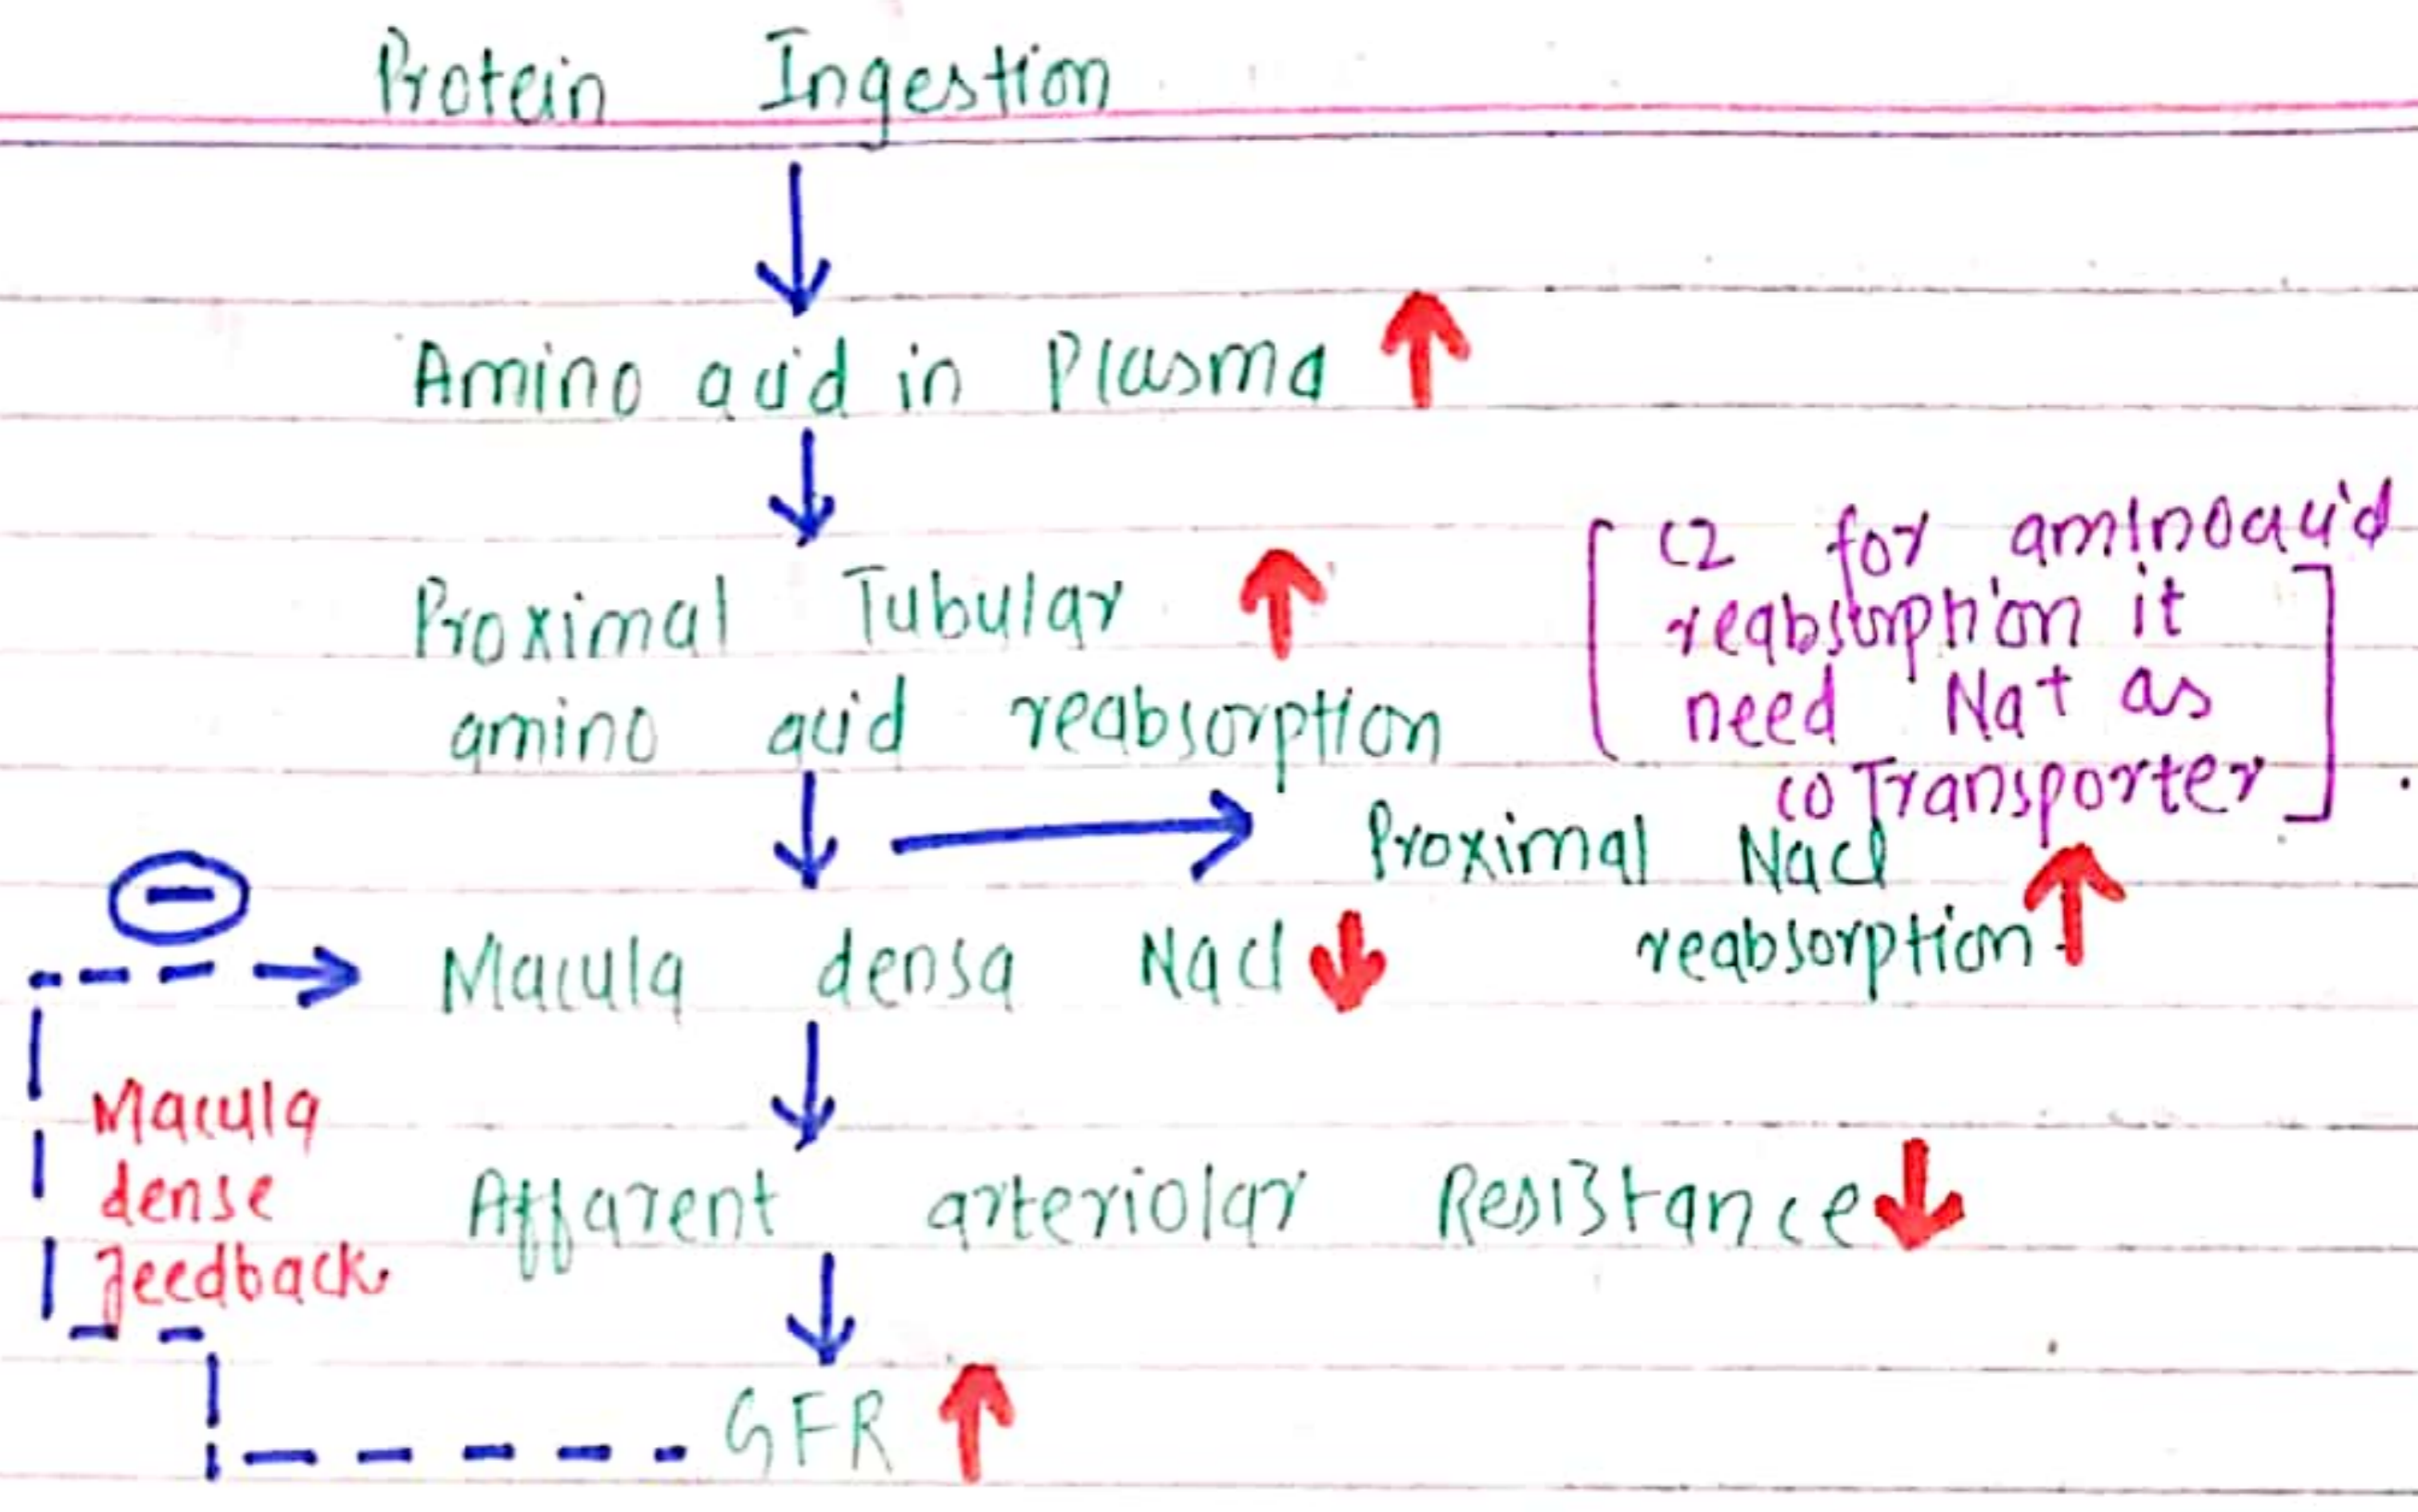 Protein Ingestion
↓
Amino acid in Plasma ↑
↓
Proximal Tubular ↑
amino acid reabsorption
[ cz for aminoacid
reabsorption it
need Na+ as
coTransporter ]
↓ → Proximal Nacl
reabsorption ↑
⊖
Macula densa Nacl ↓
↓
Macula
dense
feedback.
Affarent arteriolar Resistance ↓
↓
GFR ↑